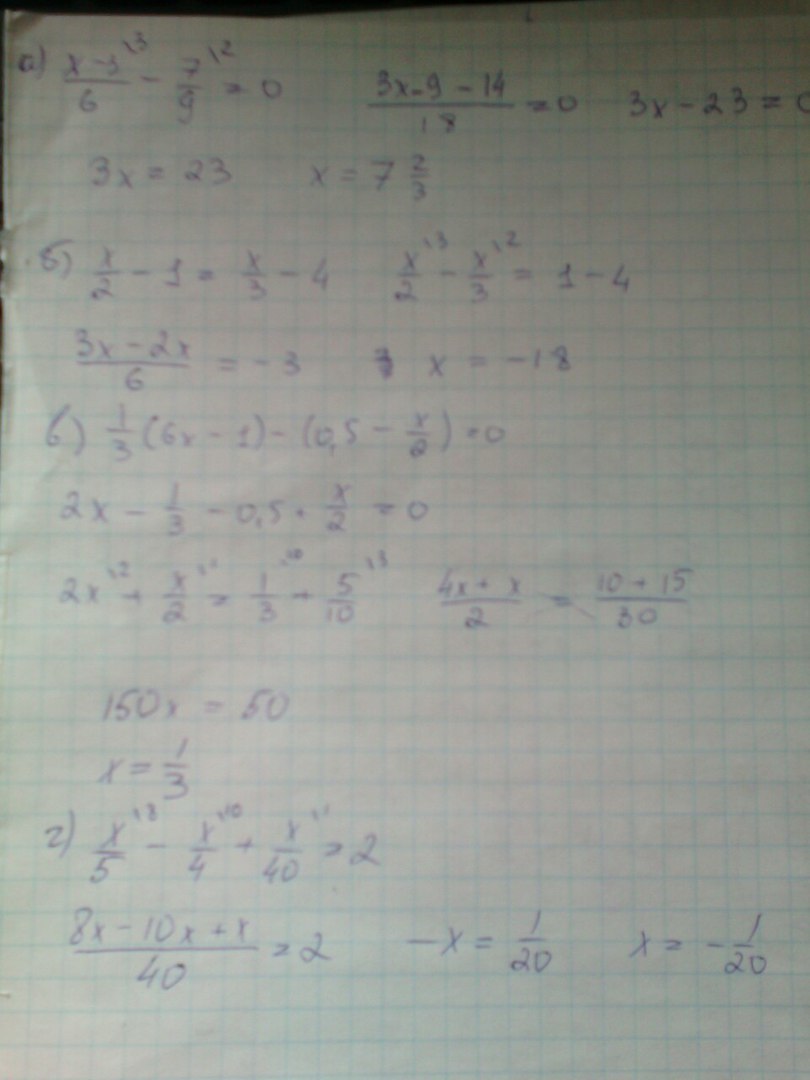 а) (x-3)/6 \3 - 7/9 \2 = 0 (3x-9-14)/18 = 0 3x-23=0
3x = 23 x = 7 2/3
б) x/2 - 1 = x/3 - 4 x/2 \3 - x/3 \2 = 1-4
(3x-2x)/6 = -3 x = -18
в) 1/3 (6x-1) - (0,5 - x/2) = 0
2x - 1/3 - 0,5 + x/2 = 0
2x \2 + x/2 \1 = 1/3 \10 + 5/10 \3 (4x+x)/2 = (10+15)/30
150x = 50
x = 1/3
г) x/5 \8 - x/4 \10 + x/40 \1 = 2
(8x-10x+x)/40 = 2 -x = 1/20 x = -1/20